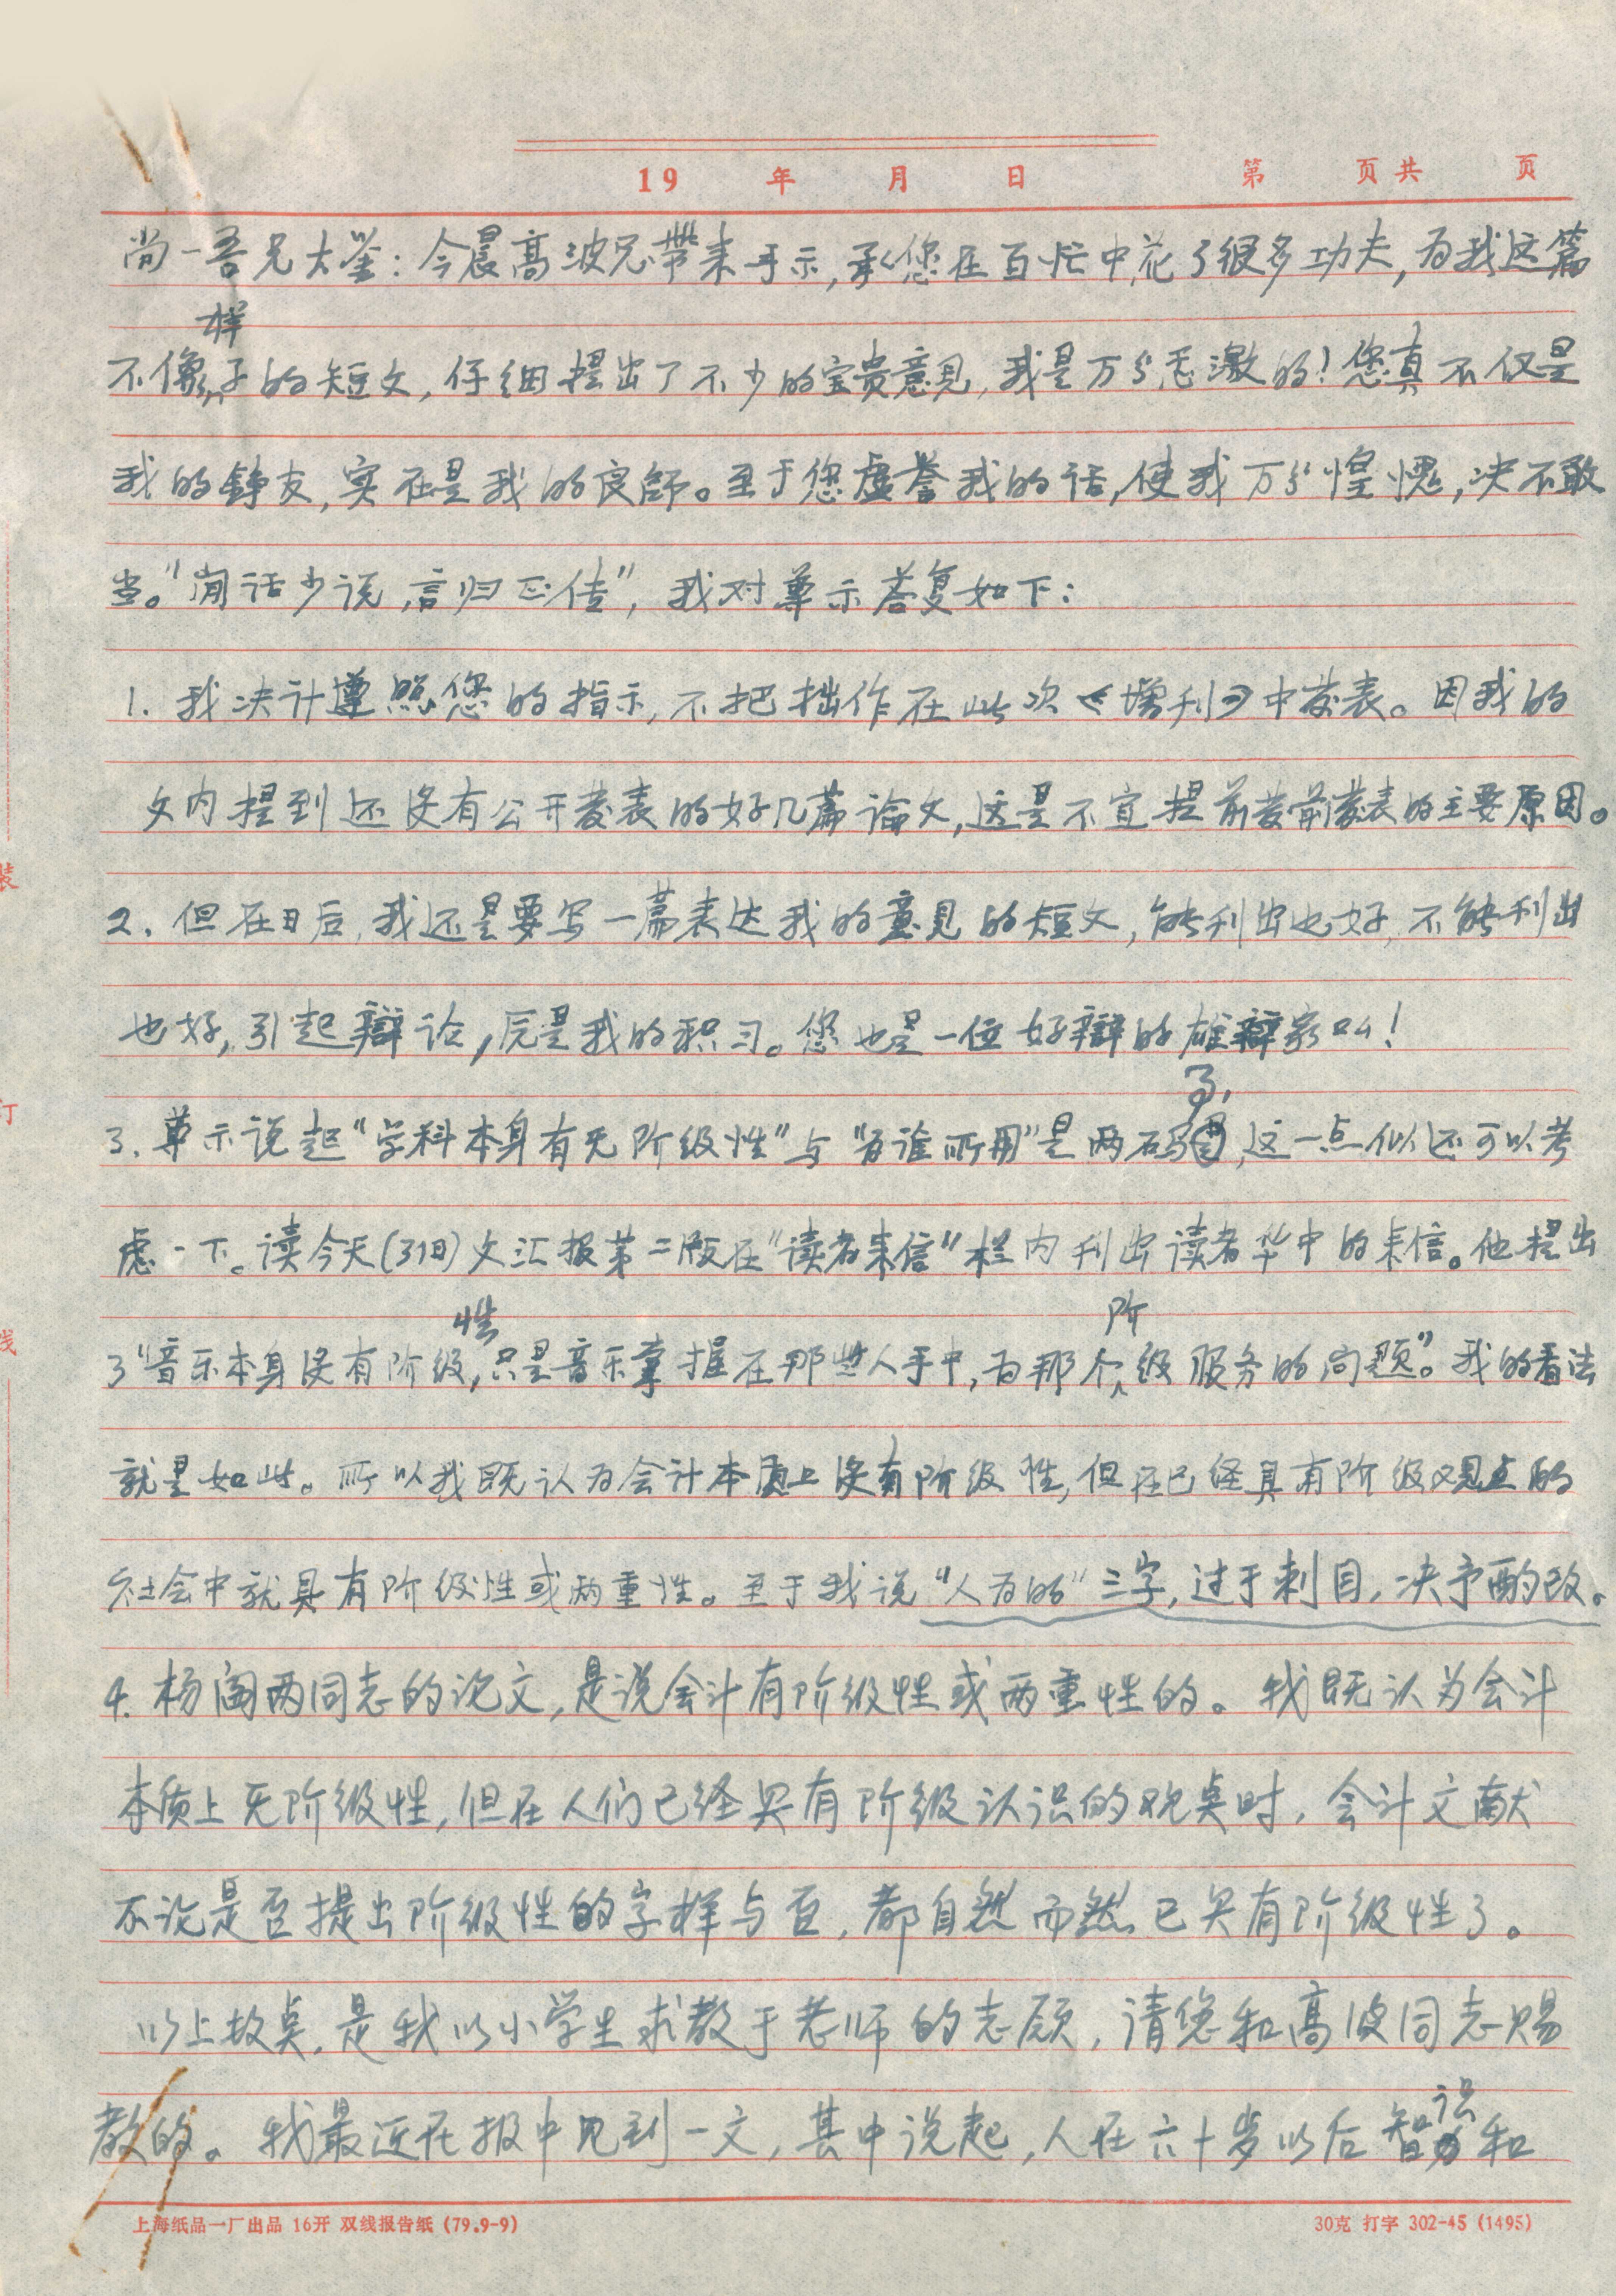 19 年 月 日 第 页共 页
尚一吾兄大鉴：今晨高波兄带来手示，承您在百忙中花了很多功夫，为我这篇
不像样子的短文，仔细提出了不少的宝贵意见，我是万分感激的！您真不仅是
我的诤友，实在是我的良师。至于您虚誉我的话，使我万分惶愧，决不敢
当。“闲话少说，言归正传”，我对尊示答复如下：
1. 我决计遵照您的指示，不把拙作在此次《增刊》中发表。因我的
文内提到还没有公开发表的好几篇论文，这是不宜提前发表的主要原因。
2. 但在日后，我还是要写一篇表达我的意见的短文，能刊出也好，不能刊出
也好，引起辩论，原是我的积习。您也是一位好辩的雄辩家吗！
3. 尊示说起“学科本身有无阶级性”与“为谁所用”是两码事，这一点似还可以考
虑一下。读今天(31日)文汇报第二版在“读者来信”栏内刊出读者华中的来信。他提出
了“音乐本身没有阶级性，只是音乐掌握在那些人手中，为那个阶级服务的问题”。我的看法
就是如此。所以我既认为会计本质上没有阶级性，但在已经具有阶级观点的
社会中就具有阶级性或两重性。至于我说“人为的”三字，过于刺目，决予酌改。
4. 杨阎两同志的论文，是说会计有阶级性或两重性的。我既认为会计
本质上无阶级性，但在人们已经具有阶级认识的观点时，会计文献
不论是否提出阶级性的字样与否，都自然而然已具有阶级性了。
以上放矢，是我以小学生求教于老师的志愿，请您和高波同志赐
教的。我最近在报中见到一文，其中说起，人在六十岁以后智识和
上海纸品一厂出品 16开 双线报告纸 (79.9-9) 30克 打字 302-45 (1495)
装
订
线